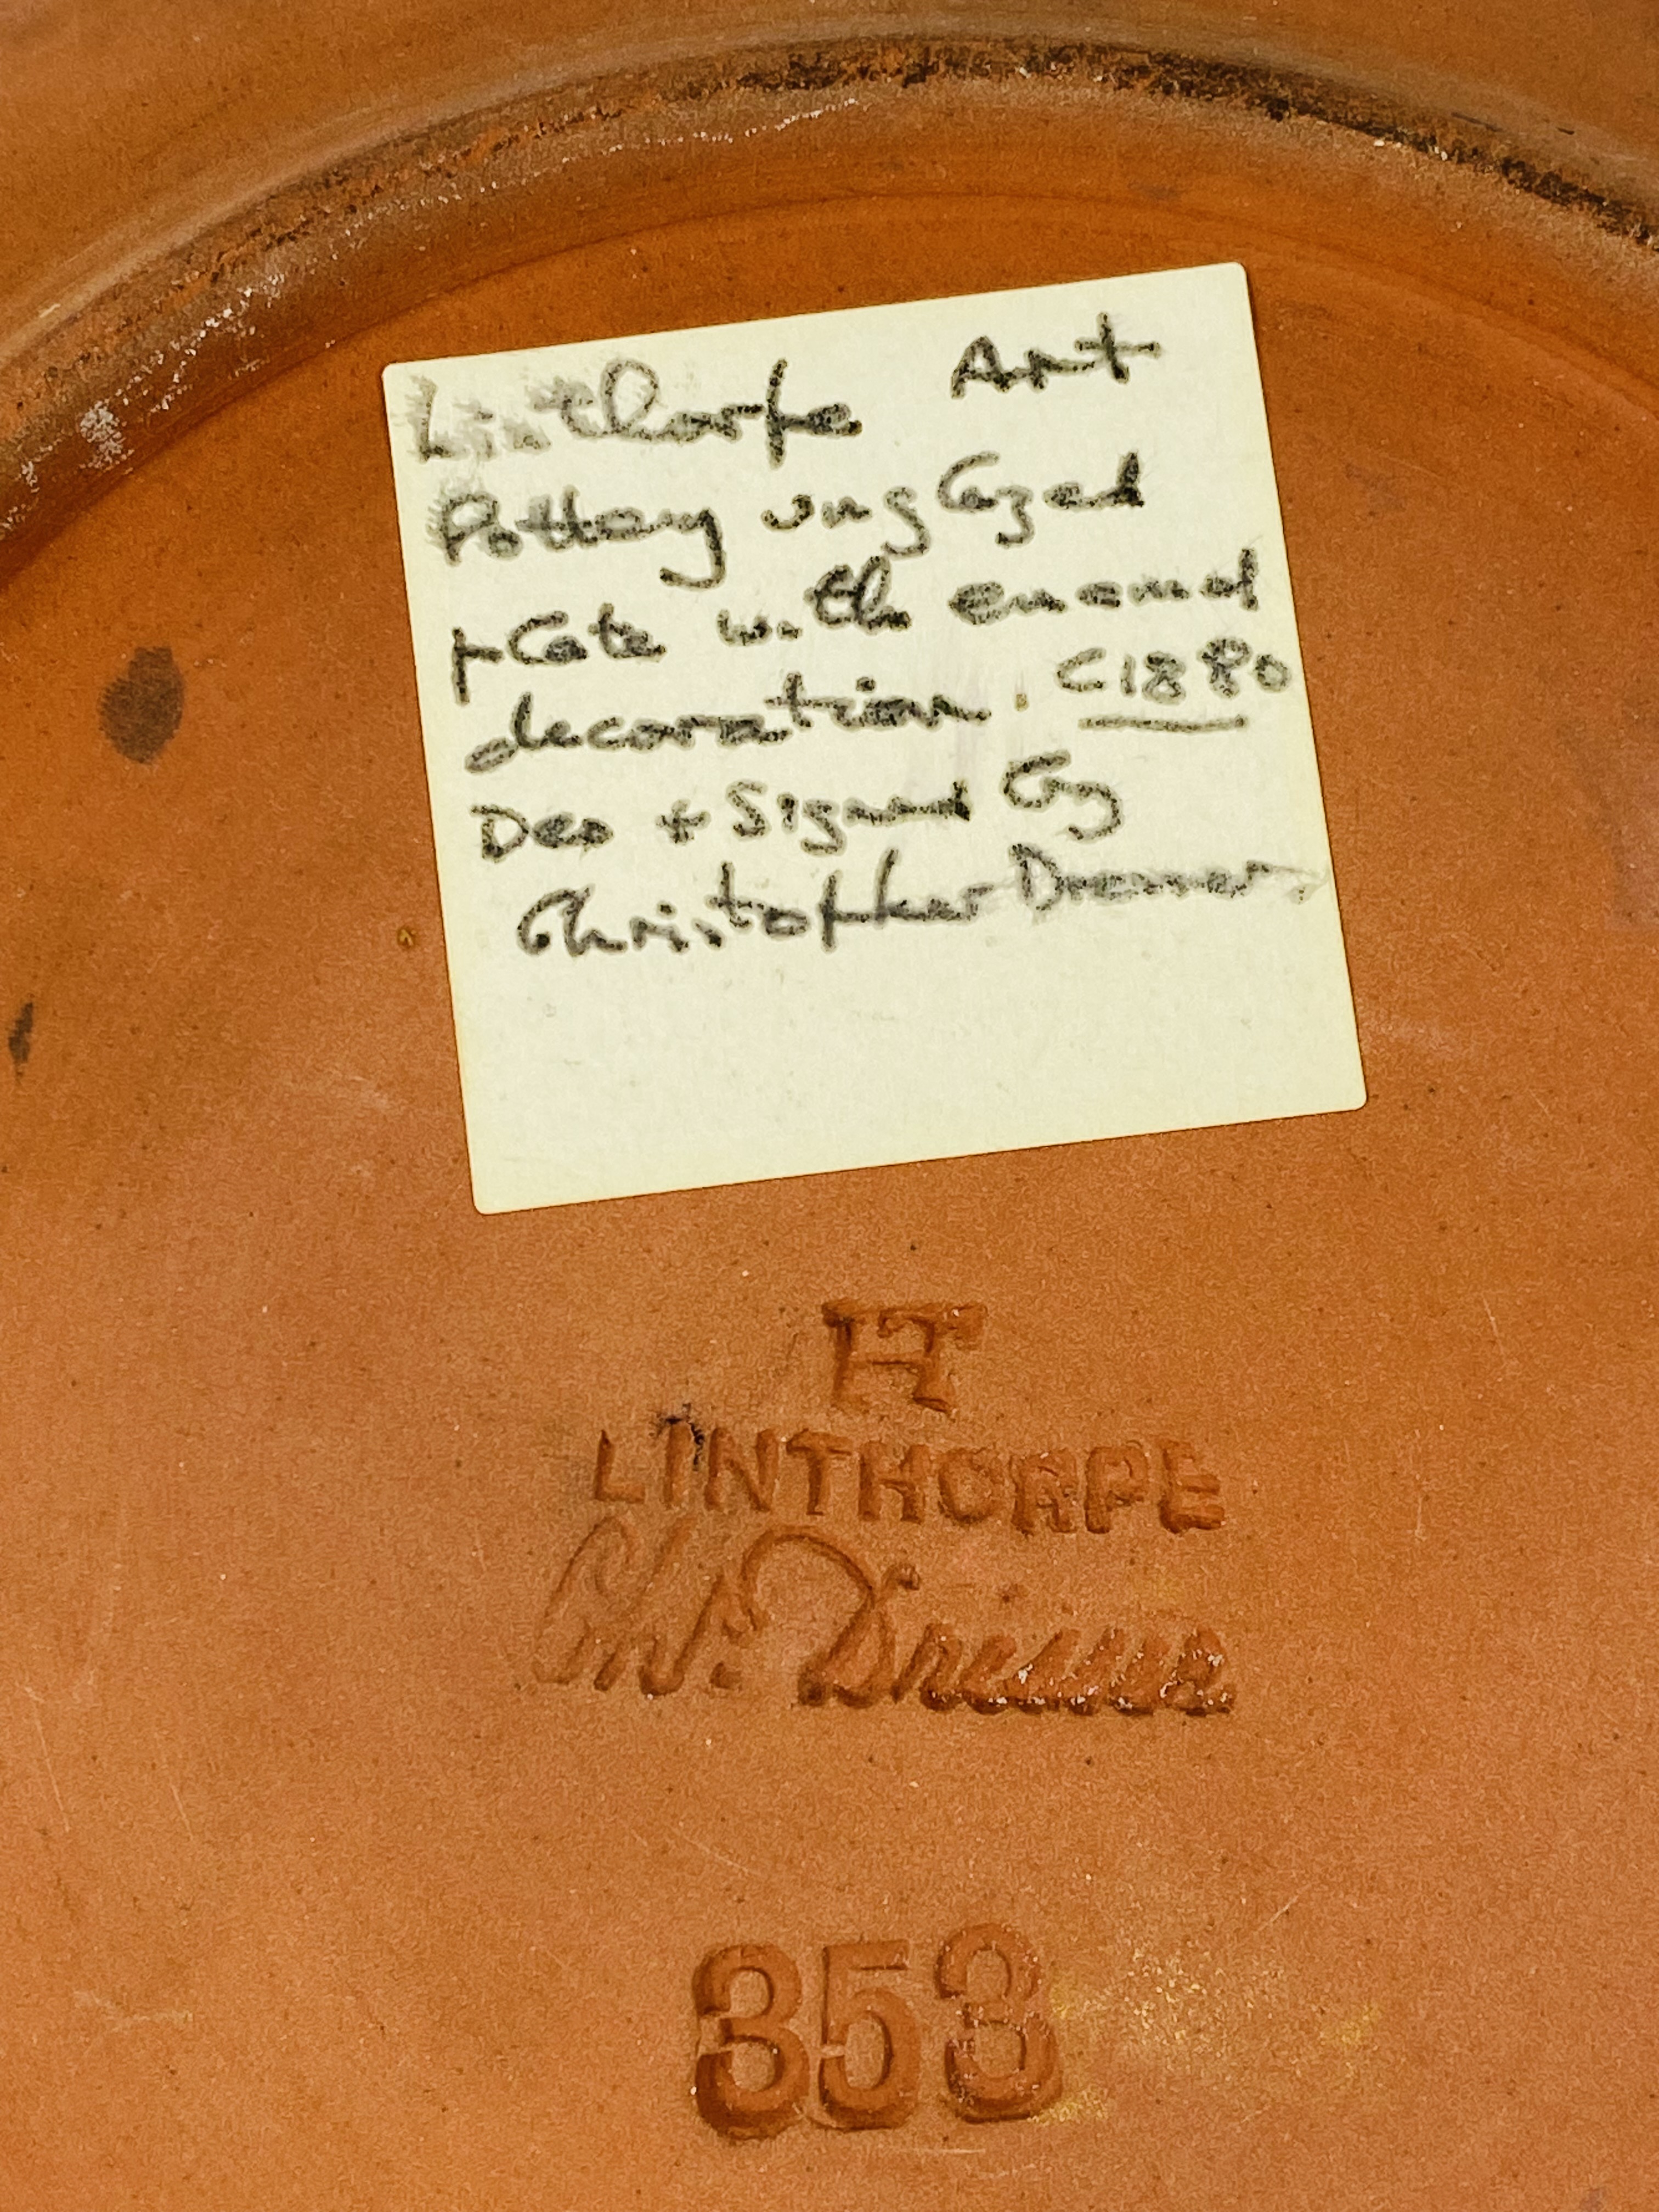 Linthorpe Art
Pottery unglazed
plate with enamel
decoration. C1880
Des + Signed by
Christopher Dresser.
HT
LINTHORPE
Chr. Dresser
353